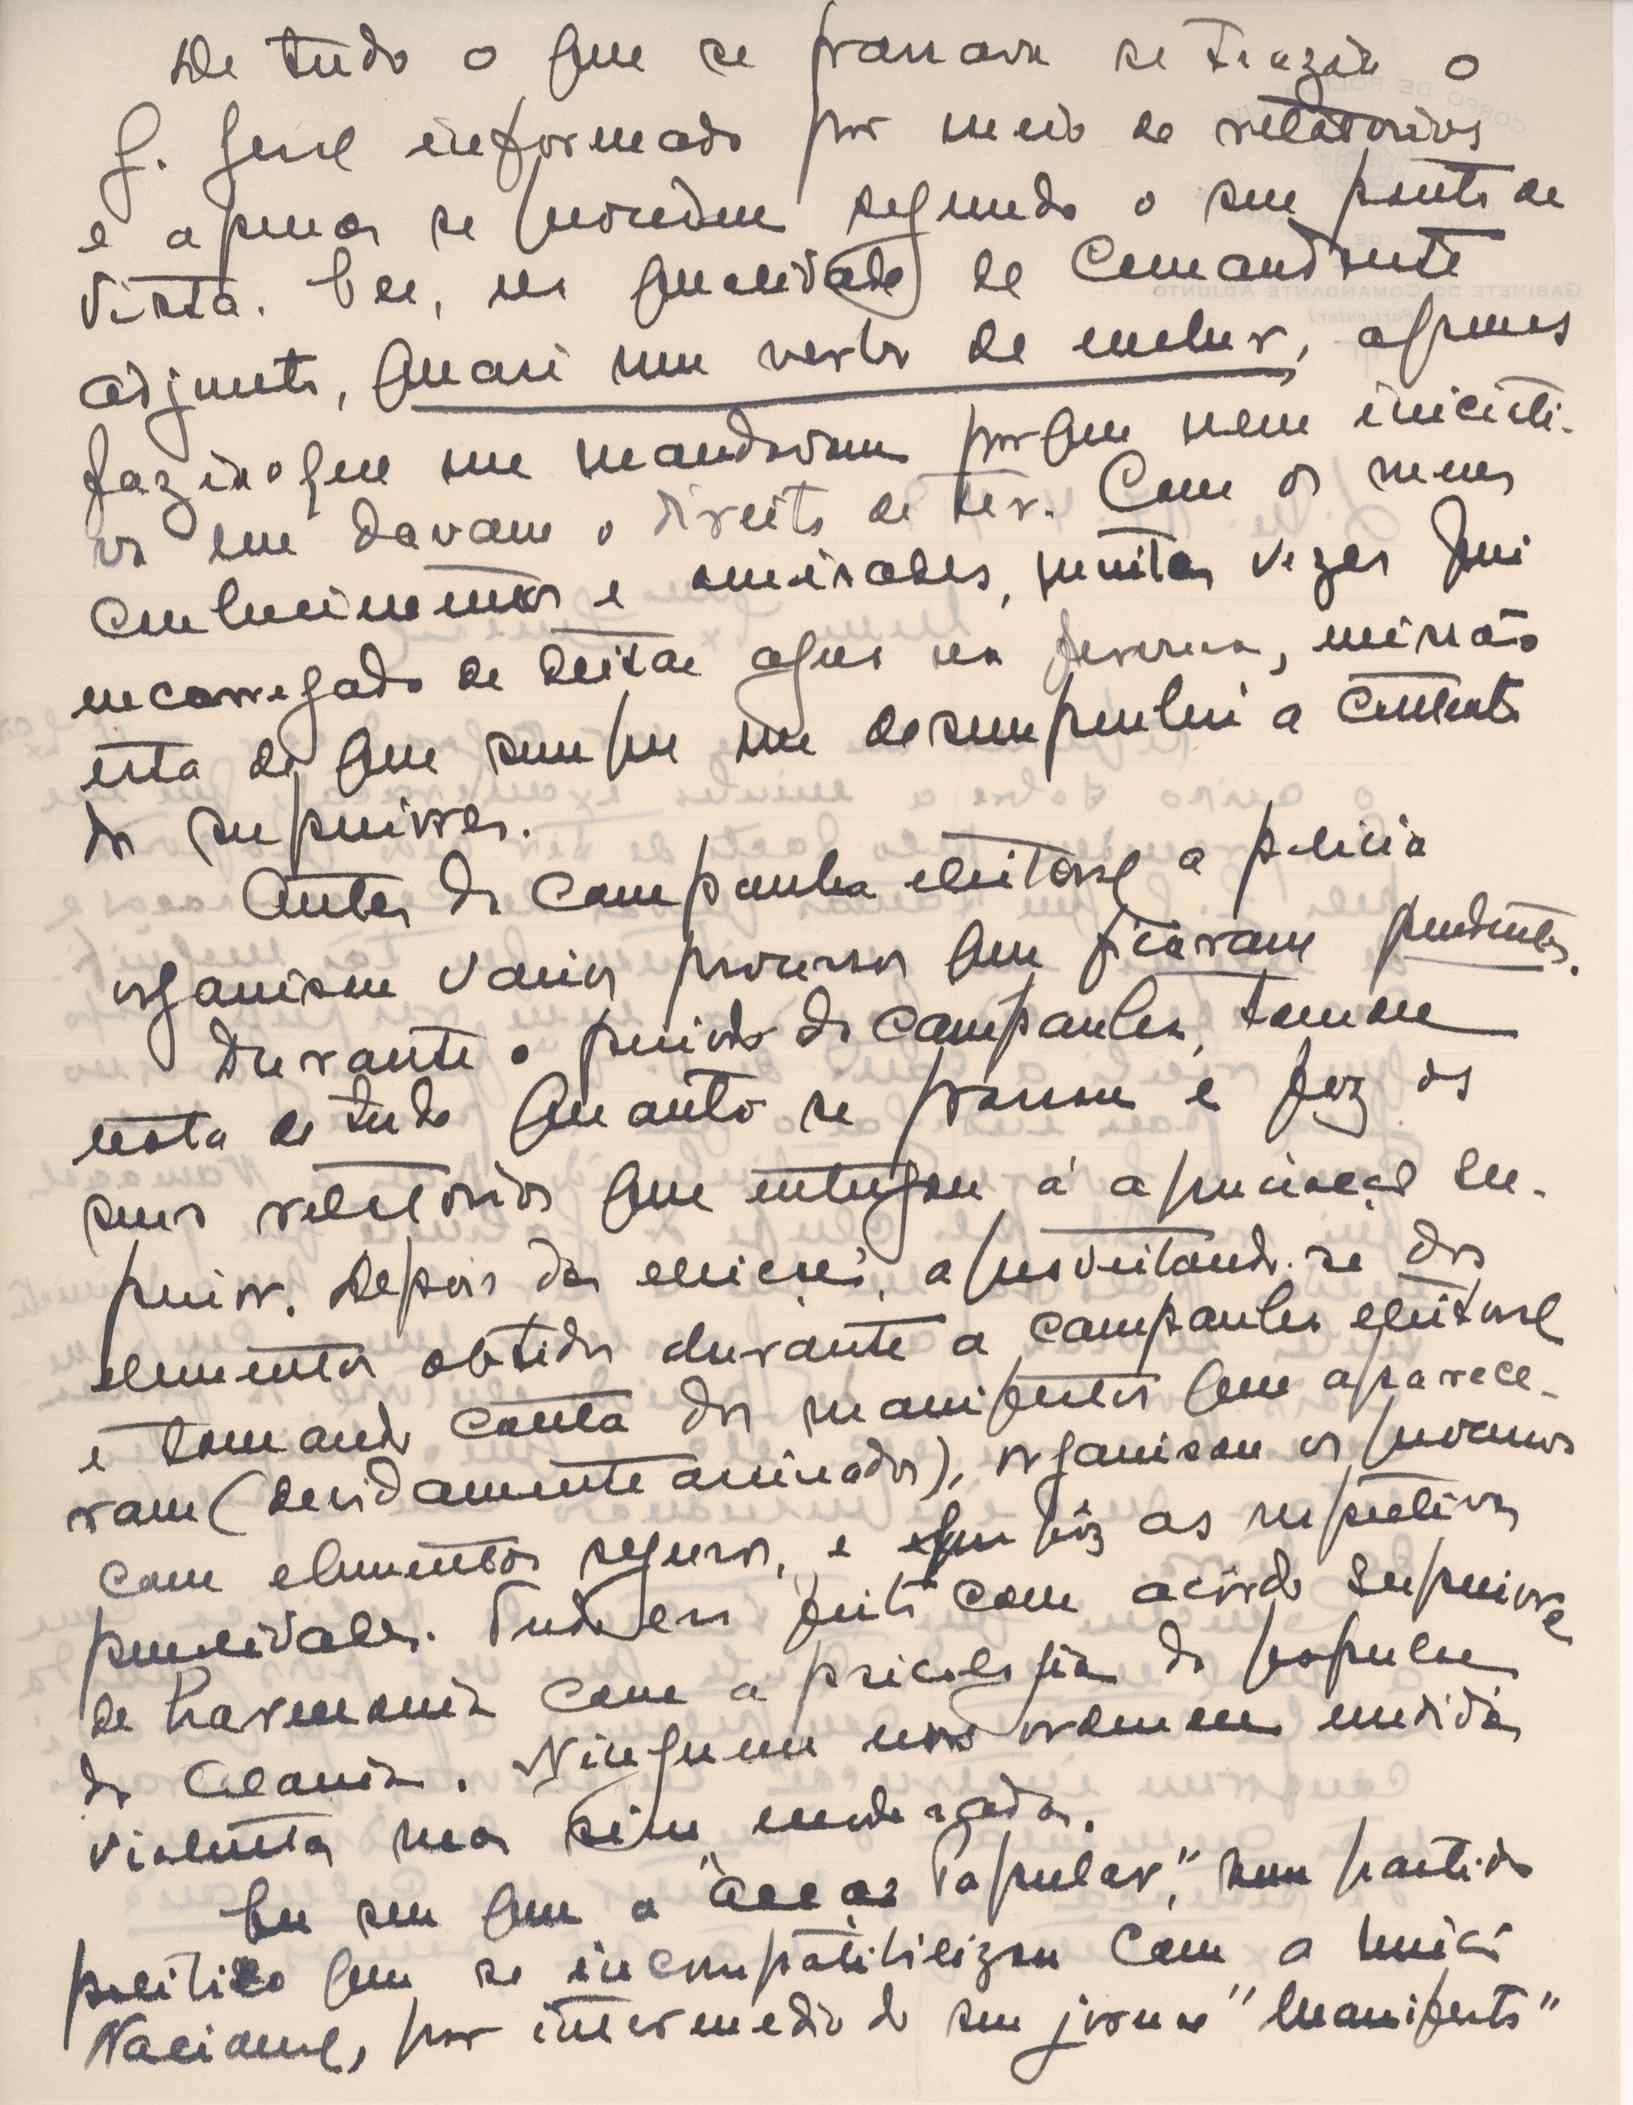 De tudo o que se passava se trazia o
G. Geral informado por meio de relatorios
e apenas se procedeu segundo o seu ponto de
vista. Eu, na qualidade de Comandante
adjunto, quasi um verbo de encher, apenas
fazia o que me mandavam porque nem iniciati-
va me davam o direito de ter. Com os meus
conhecimentos e amisades, muitas vezes fui
encarregado de deitar agua na fervura, missão
esta de que sempre me desempenhei a contento
dos superiores.
Antes da campanha eleitoral a policia
organisou varios processos que ficaram pendentes.
Durante o periodo da campanha, tomou
nota de tudo quanto se passou e fez os
seus relatorios que entregou á apreciação su-
perior. Depois das eleições, aproveitando-se dos
elementos obtidos durante a campanha eleitoral
e tomando conta dos manifestos que aparece-
ram (devidamente assinados), organisou os processos
com elementos seguros, e as respetivas
penalidades. Tudo era feito com acôrdo superior e
de harmonia com a psicologia da populaç
da Colonia. Ninguem nos ordenou medidas
violentas mas sim moderadas.
Eu sou que a "Acção Popular", num partido
politico que se incompatibilizou com a União
Nacional, por intermedio do seu jornal "Manifesto"
GABINETE DO COMANDANTE ADJUNTO